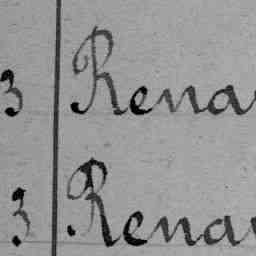 3 Rena
3 Rena